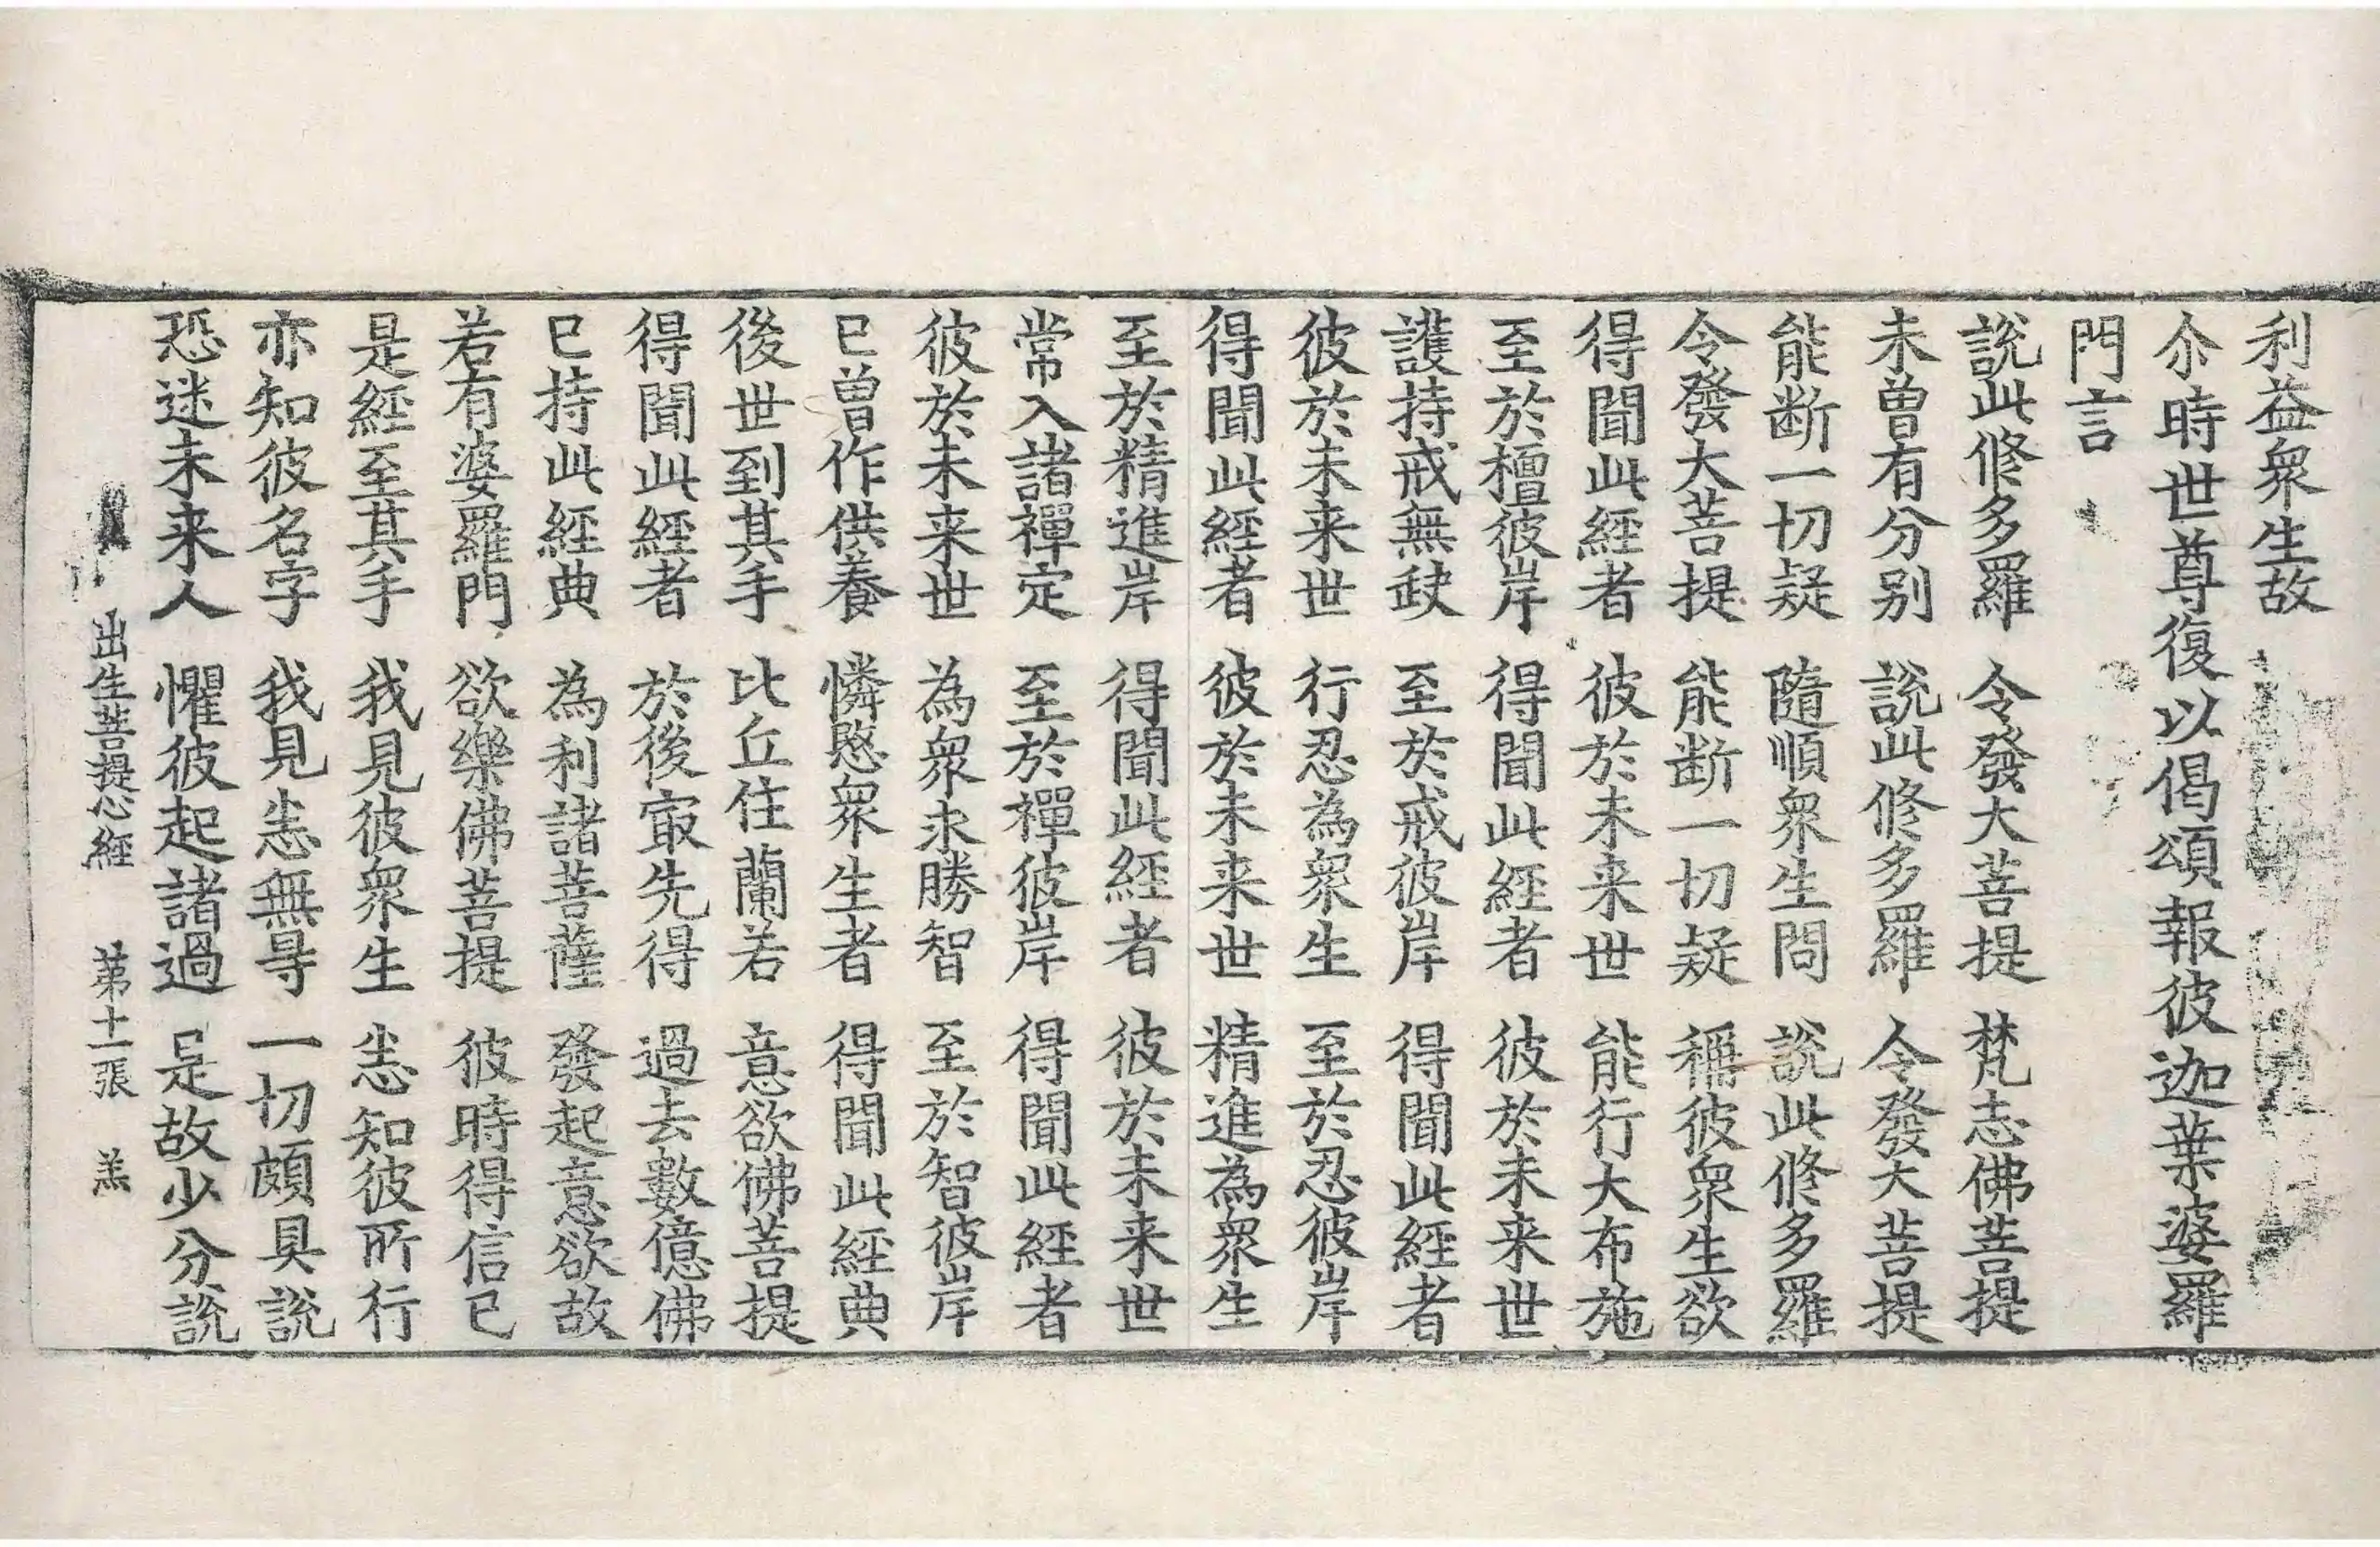 利益衆生故
尒時世尊復以偈頌報彼迦葉婆羅
門言
說此修多羅 令發大菩提 梵志佛菩提
未曾有分别 說此修多羅 令發大菩提
能断一切疑 隨順衆生問 說此修多羅
令發大菩提 能断一切疑 稱彼衆生欲
得聞此經者 彼於未来世 能行大布施
至於檀彼岸 得聞此經者 彼於未来世
護持戒無缺 至於戒彼岸 得聞此經者
彼於未来世 行忍為衆生 至於忍彼岸
得聞此經者 彼於未来世 精進為衆生
至於精進岸 得聞此經者 彼於未来世
常入諸禪定 至於禪彼岸 得聞此經者
彼於未来世 為衆求勝智 至於智彼岸
已曾作供養 憐愍衆生者 得聞此經典
後世到其手 比丘住蘭若 意欲佛菩提
得聞此經者 於後冣先得 過去數億佛
已持此經典 為利諸菩薩 發起意欲故
若有婆羅門 欲樂佛菩提 彼時得信已
是經至其手 我見彼衆生 悉知彼所行
亦知彼名字 我見悉無㝵 一切頗具說
恐迷未来人 懼彼起諸過 是故少分說
出生菩提心經 第十一張 羔